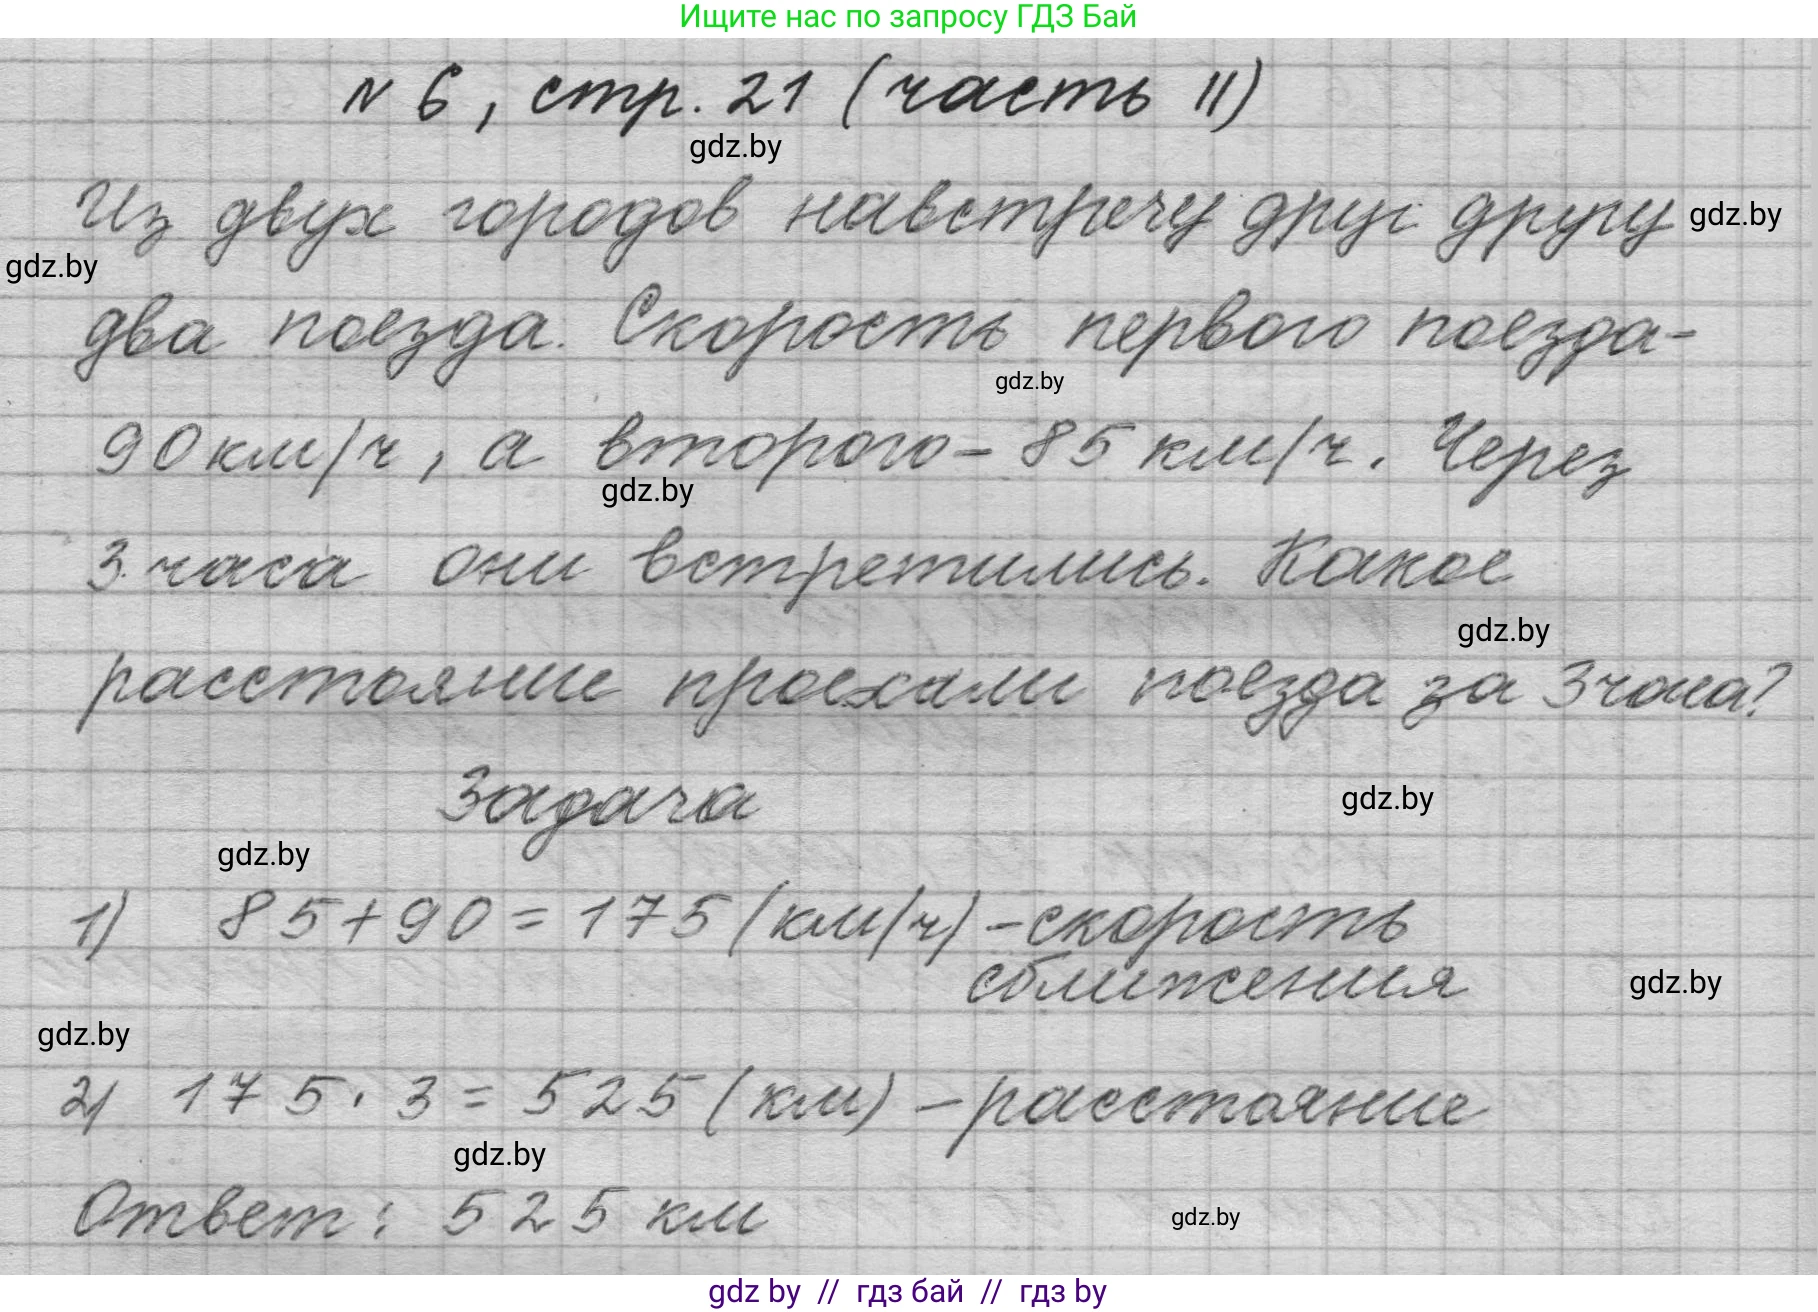 Ищите нас по запросу ГДЗ Бай
№ 6, стр. 21 (часть II)
gdz.by
Из двух городов навстречу друг другу
gdz.by
gdz.by
два поезда. Скорость первого поезда-
gdz.by
90 км/ч, а второго - 85 км/ч. Через
gdz.by
3 часа они встретились. Какое
gdz.by
расстояние проехали поезда за 3 часа?
Задача
gdz.by
gdz.by
1) 85+90=175 (км/ч) - скорость
сближения
gdz.by
gdz.by
2) 175·3=525 (км) - расстояние
gdz.by
Ответ: 525 км
gdz.by
gdz by // гдз бай // гдз by